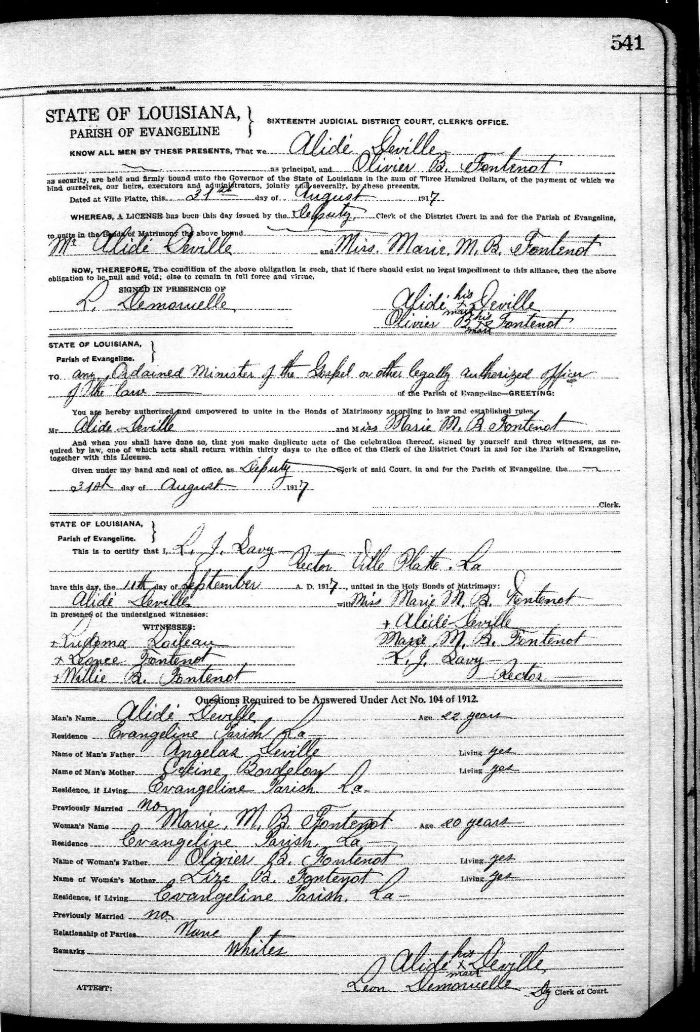 541
STATE OF LOUISIANA,
PARISH OF EVANGELINE
SIXTEENTH JUDICIAL DISTRICT COURT, CLERK'S OFFICE.
KNOW ALL MEN BY THESE PRESENTS, That we Alidé Deville
as principal, and Olivier B. Fontenot
as security, are held and firmly bound unto the Governor of the State of Louisiana in the sum of Three Hundred Dollars, of the payment of which we
bind ourselves, our heirs, executors and administrators, jointly and severally, by these presents.
Dated at Ville Platte, this 31st day of August 1917
WHEREAS, A LICENSE has been this day issued by the Deputy Clerk of the District Court in and for the Parish of Evangeline,
to unite in the Bonds of Matrimony the above bound
Mr Alidé Deville and Miss. Marie. M. B. Fontenot
NOW, THEREFORE, The condition of the above obligation is such, that if there should exist no legal impediment to this alliance, then the above
obligation to be null and void; else to remain in full force and virtue.
SIGNED IN PRESENCE OF
L. Demoruelle Alidé his x mark Deville
Olivier B. his x mark Fontenot
STATE OF LOUISIANA,
Parish of Evangeline.
TO any Ordained Minister of the Gospel or other legally authorized officer
of the law of the Parish of Evangeline—GREETING:
You are hereby authorized and empowered to unite in the Bonds of Matrimony according to law and established rules,
Mr Alidé Deville and Miss Marie M. B. Fontenot
And when you shall have done so, that you make duplicate acts of the celebration thereof, signed by yourself and three witnesses, as re-
quired by law, one of which acts shall return within thirty days to the office of the Clerk of the District Court in and for the Parish of Evangeline,
together with this License.
Given under my hand and seal of office, as Deputy Clerk of said Court, in and for the Parish of Evangeline, the
31st day of August 1917
Clerk.
STATE OF LOUISIANA,
Parish of Evangeline.
This is to certify that I, L. J. Savy
Rector Ville Platte La
have this day, the 11th day of September A. D. 1917, united in the Holy Bonds of Matrimony:
Alidé Deville with Miss Marie M. B. Fontenot
in presence of the undersigned witnesses: + Alidé Deville
WITNESSES: Marie M. B. Fontenot
+ Loileau L. J. Savy
+ Leonce Fontenot Rector
+ Willie B. Fontenot
Questions Required to be Answered Under Act No. 104 of 1912.
Man's Name Alidé Deville Age 22 years
Residence Evangeline Parish La
Name of Man's Father Angelas Deville Living yes
Name of Man's Mother Celine Bordelon Living yes
Residence, if Living Evangeline Parish La
Previously Married no
Woman's Name Marie, M. B. Fontenot Age 20 years
Residence Evangeline Parish La
Name of Woman's Father Olivier B. Fontenot Living yes
Name of Woman's Mother Lize B. Fontenot Living yes
Residence, if Living Evangeline Parish, La
Previously Married no
Relationship of Parties None
Remarks Whites
Alidé his x mark Deville
ATTEST: Leon Demoruelle Dy Clerk of Court.